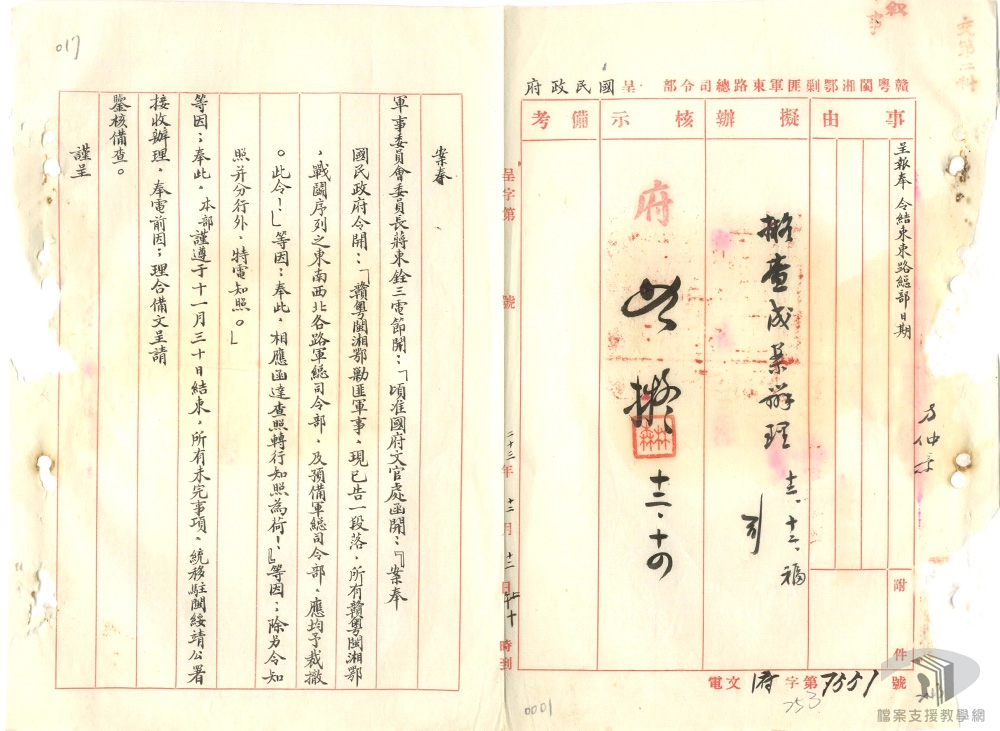 贛粵閩湘鄂剿匪軍東路總司令部 呈 國民政府
事由
擬辦
核示
備考
呈報奉 令結束東路總部日期
附件
擬查成案辦理
十二、福
府
如擬
森林
十二、十四
呈字第 號
二十三年十二月十二日 十時到
電文府字第7551號
753
0001
017
案奉
軍事委員會委員長蔣東銓三電節開:「頃准國府文官處函開:『案奉
國民政府令開:「贛粵閩湘鄂勦匪軍事、現已告一段落、所有贛粵閩湘鄂
、戰鬪序列之東南西北各路軍總司令部、及預備軍總司令部、應均予裁撤
。此令!」等因;奉此、相應函達查照轉行知照為荷!』等因;除另令知
照并分行外、特電知照。」
等因;奉此。本部謹遵于十一月三十日結束,所有未完事項、統移駐閩綏靖公署
接收辦理、奉電前因;理合備文呈請
鑒核備查。
謹呈
檔案支援教學網